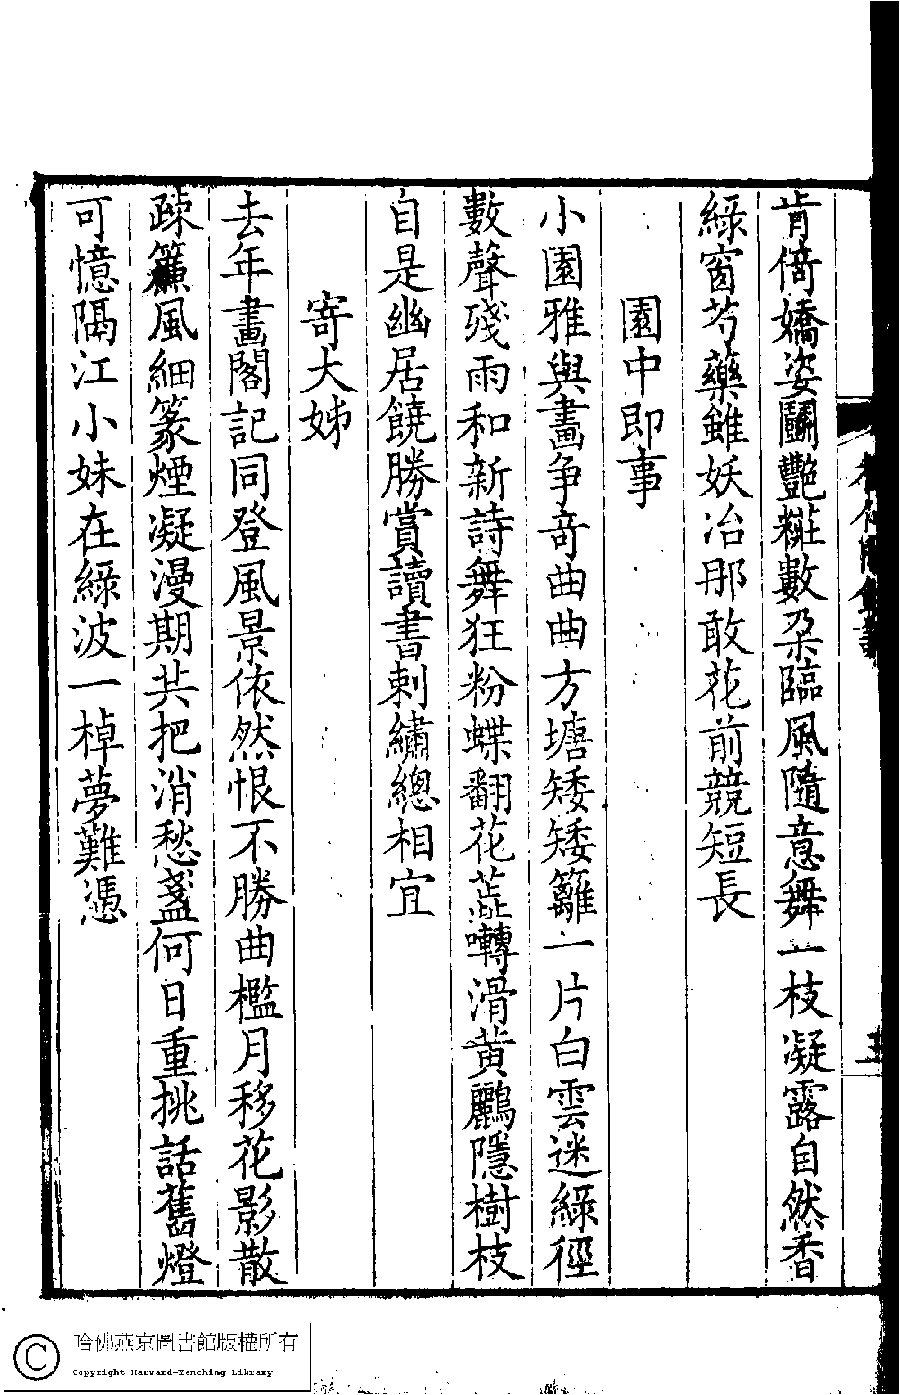 肯倚嬌姿鬭艷糚數朶臨風隨意舞一枝凝露自然香
綠窗芍藥雖妖冶那敢花前競短長
園中即事
小園雅與畫争竒曲曲方塘矮矮籬一片白雲迷綠徑
數聲殘雨和新詩舞狂粉蝶翻花蕋囀滑黄鸝隱樹枝
自是幽居饒勝賞讀書刺繡總相宜
寄大姊
去年畫閣記同登風景依然恨不勝曲檻月移花影散
疎簾風細篆煙凝漫期共把消愁盞何日重挑話舊燈
可憶隔江小妹在綠波一棹夢難憑
哈佛燕京圖書館版權所有
Copyright Harvard-Yenching Library